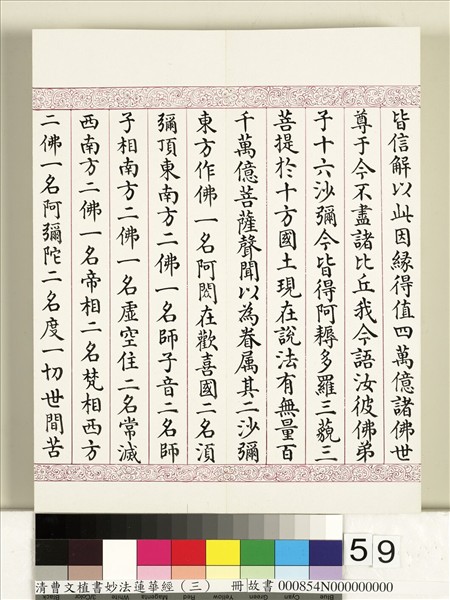 皆信解以此因緣得值四萬億諸佛世
尊于今不盡諸比丘我今語汝彼佛弟
子十六沙彌今皆得阿耨多羅三藐三
菩提於十方國土現在說法有無量百
千萬億菩薩聲聞以為眷属其二沙彌
東方作佛一名阿閦在歡喜國二名湏
彌頂東南方二佛一名師子音二名師
子相南方二佛一名虛空住二名常滅
西南方二佛一名帝相二名梵相西方
二佛一名阿彌陀二名度一切世間苦
59
清曹文植書妙法蓮華經（三） 冊 故書 000854N000000000
Black 3/Color White Magenta Red Yellow Green Cyan Blue